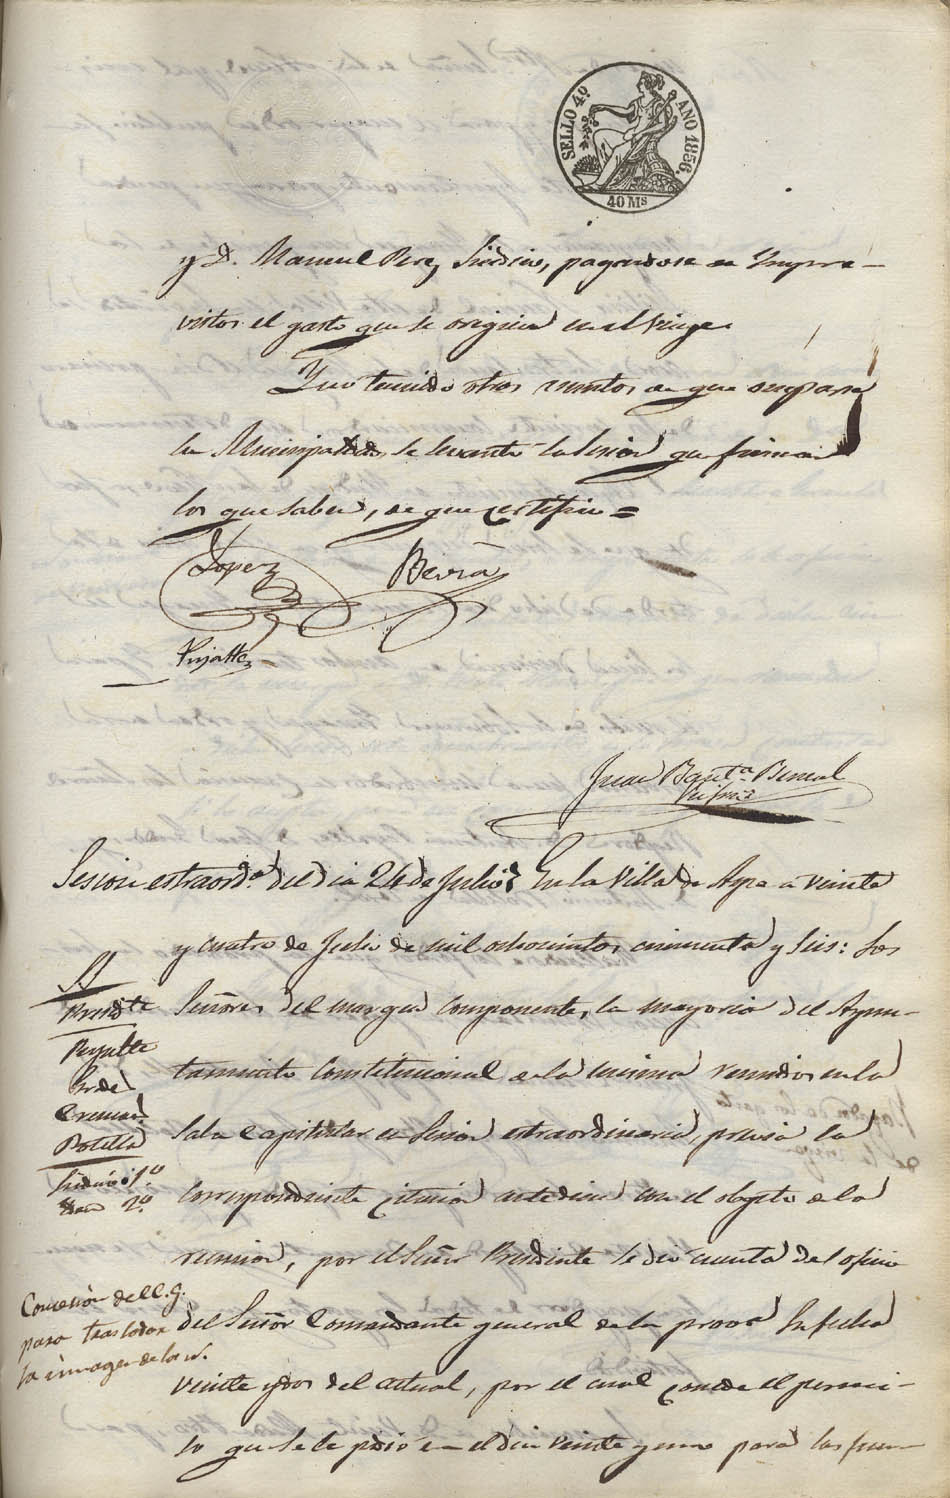 SELLO 4º AÑO 1856.
40 Ms
y D. Manuel Perez Sindico, pagandose de Impre-
vistos el gasto que se origine en el viage.
Y no teniendo otros asuntos de que ocuparse
la Municipalidad se levantó la Sesion que firman
los que saben, de que certifico =
Lopez
Bevia
Pujalte
Juan Bauta Bernal
Sesion estraorda del dia 24 de Julio En la Villa de Aspe a veinte
y cuatro de Julio de mil ochocientos cincuenta y seis: Los
SS
Presidte
Pujalte
Botella
Sindico 1º
2º
Señores del margen componentes la mayoria del Ayun-
tamiento Constitucional de la misma reunidos en la
Sala Capitular en Sesion estraordinaria, previa la
correspondiente citacion antediem con el objeto de la
reunion, por el Señor Presidente se dio cuenta del oficio
Concesion del C. G.
para trasladar
la imagen de la
del Señor Comandante general de la prova su fecha
veinte y dos del actual, por el cual concede el permi-
so que se le pidió en el dia veinte y uno para las fun-